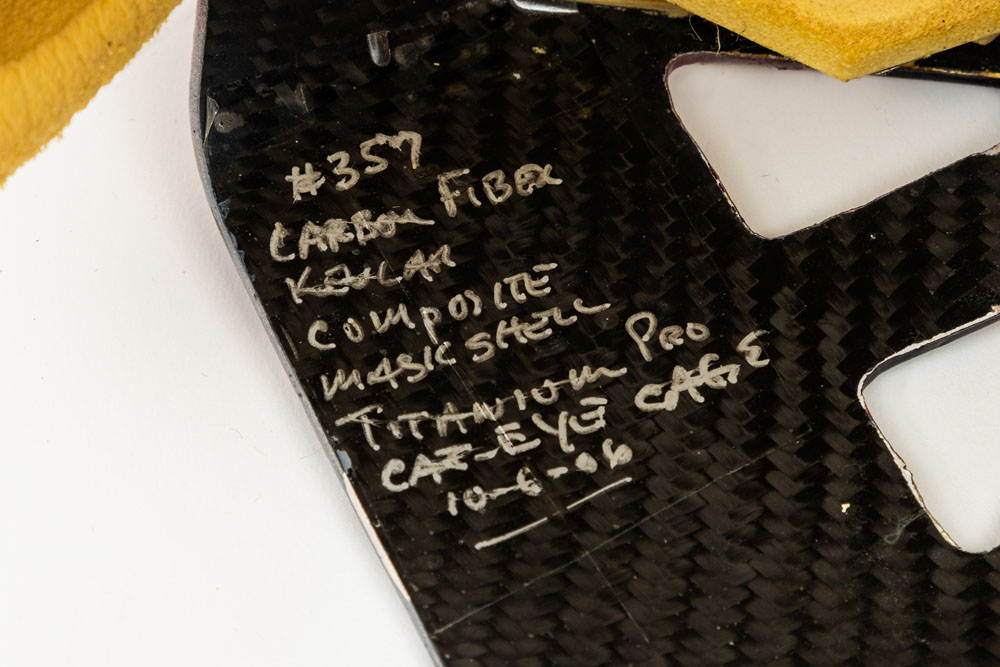 #357
CARBON FIBER
KEVLAR
COMPOSITE
MASK SHELL
TITANIUM PRO
CAT-EYE CAGE
10-6-06